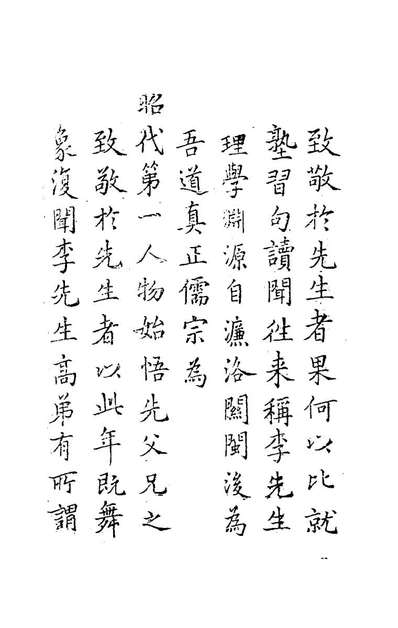 致敬於先生者果何以比就
塾習句讀聞徃来稱李先生
理學淵源自濂洛關閩後為
吾道真正儒宗為
昭代第一人物始悟先父兄之
致敬於先生者以此年既舞
象復聞李先生高弟有所謂